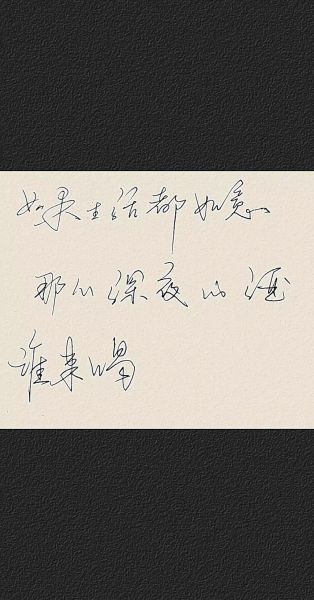 如果生活都如意
那么深夜的酒
谁来喝